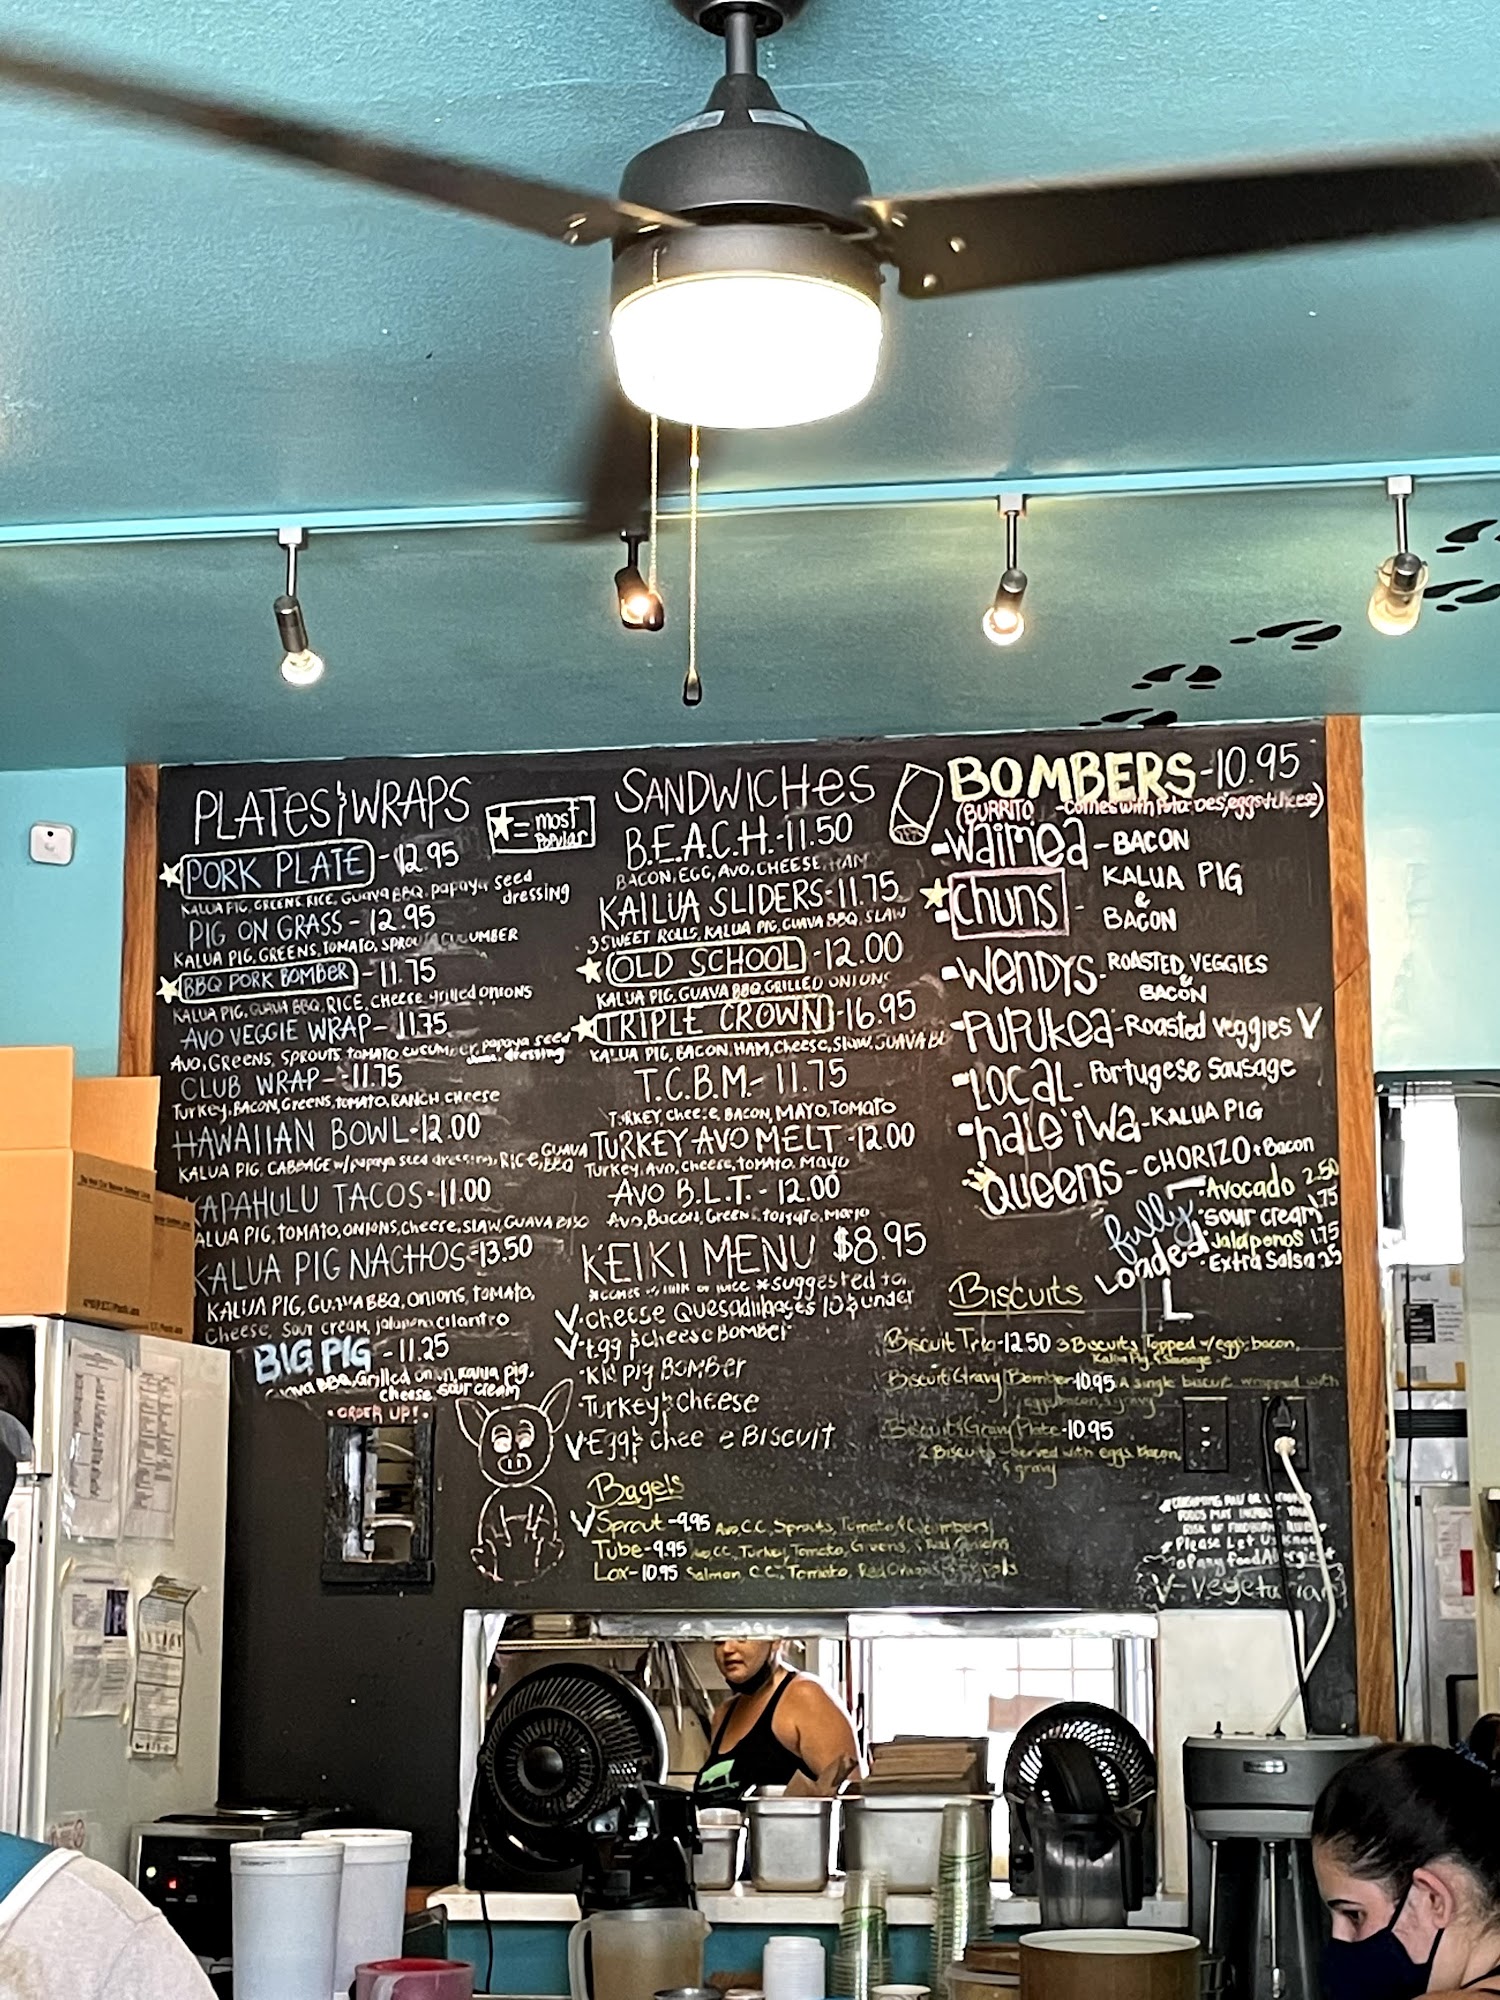 PLATES & WRAPS
★ = most Popular
PORK PLATE - 12.95
KALUA PIG, GREENS, RICE, GUAVA BBQ, papaya seed dressing
PIG ON GRASS - 12.95
KALUA PIG, GREENS, TOMATO, SPROUTS, CUCUMBER
BBQ PORK BOMBER - 11.75
KALUA PIG, GUAVA BBQ, RICE, CHEESE, grilled onions
AVO VEGGIE WRAP - 11.75
AVO, GREENS, SPROUTS, TOMATO, CUCUMBER, papaya seed dressing
CLUB WRAP - 11.75
Turkey, BACON, Greens, TOMATO, RANCH CHEESE
HAWAIIAN BOWL - 12.00
KALUA PIG, CABBAGE w/ papaya seed dressing, RICE, GUAVA BBQ
KAPAHULU TACOS - 11.00
KALUA PIG, TOMATO, ONIONS, CHEESE, SLAW, GUAVA BBQ
KALUA PIG NACHOS - 13.50
KALUA PIG, GUAVA BBQ, ONIONS, TOMATO,
CHEESE, SOUR CREAM, jalapeno, cilantro
BIG PIG - 11.25
Guava BBQ, Grilled onion, Kalua pig,
cheese, sour cream
• ORDER UP! •
SANDWICHES
B.E.A.C.H. - 11.50
BACON, EGG, AVO, CHEESE, HAM
KAILUA SLIDERS - 11.75
3 SWEET ROLLS, KALUA PIG, GUAVA BBQ, SLAW
OLD SCHOOL - 12.00
KALUA PIG, GUAVA BBQ, GRILLED ONIONS
TRIPLE CROWN - 16.95
KALUA PIG, BACON, HAM, Cheese, Slaw, GUAVA BBQ
T.C.B.M. - 11.75
TURKEY, CHEESE, BACON, MAYO, TOMATO
TURKEY AVO MELT - 12.00
Turkey, Avo, cheese, TOMATO, Mayo
AVO B.L.T. - 12.00
Avo, Bacon, Greens, tomato, Mayo
KEIKI MENU $8.95
*comes w/ milk or juice *suggested for
ages 10 & under
V • cheese Quesadilla
V • Egg & cheese BOMBER
• Kid pig BOMBER
• Turkey & Cheese
V • Egg & cheese BISCUIT
Bagels
V Sprout - 9.95 Avo, C.C, Sprouts, Tomato & Cucumbers
Tube - 9.95 Avo, C.C., Turkey, Tomato, Greens, & Red Onions
Lox - 10.95 Salmon, C.C., Tomato, Red Onions
BOMBERS - 10.95
(BURRITO - comes with Potatoes, eggs & cheese)
- Waimea - BACON
- Chuns - KALUA PIG & BACON
- WENDYS - ROASTED VEGGIES & BACON
- PUPUKEA - Roasted Veggies V
- LOCAL - Portugese Sausage
- hale'iwa - KALUA PIG
Queens - CHORIZO & Bacon
fully Loaded
• Avocado 2.50
• Sour cream 1.75
• Jalapenos 1.75
• Extra Salsa .25
Biscuits
Biscuit Trio - 12.50 3 Biscuits, Topped w/ egg, bacon,
Kalua Pig & sausage
Biscuit Gravy Bomber - 10.95 A single biscuit wrapped with
egg, bacon, & gravy
Biscuit & Gravy Plate - 10.95
2 Biscuits served with eggs, bacon,
& gravy
* CONSUMING RAW OR
FOODS MAY INCREASE YOUR
RISK OF FOODBORNE
* Please Let Us Know
of any food Allergies *
V - Vegetarian